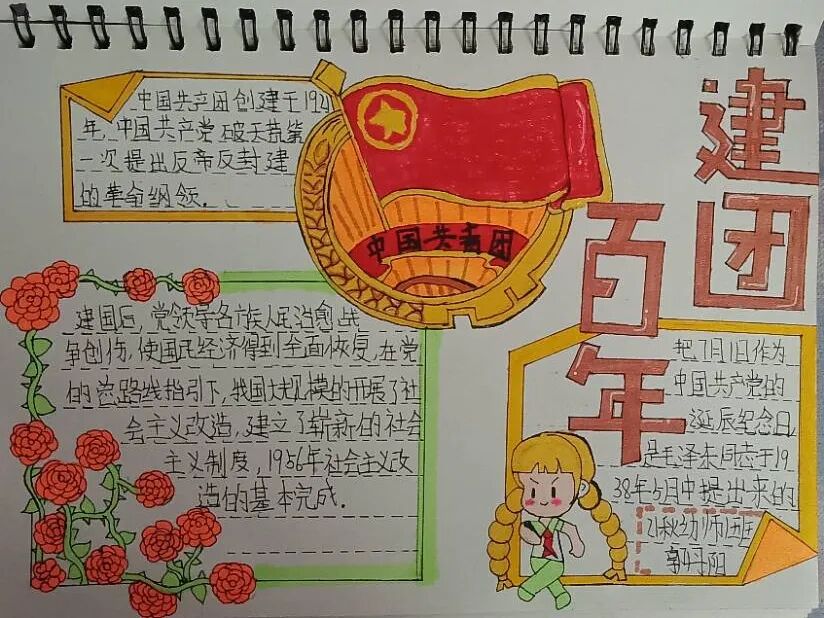 建团
百年
中国共产团创建于1921
年,中国共产党破天荒第
一次提出反帝反封建
的革命纲领.
中国共青团
建国后,党领导各族人民治愈战
争创伤,使国民经济得到全面恢复,在党
的总路线指引下,我国大规模的开展了社
会主义改造,建立了崭新的社会
主义制度,1956年社会主义改
造的基本完成.
把7月1日作为
中国共产党的
诞辰纪念日,
是毛泽东同志于19
38年5月中提出来的
21秋幼师
郭丹阳